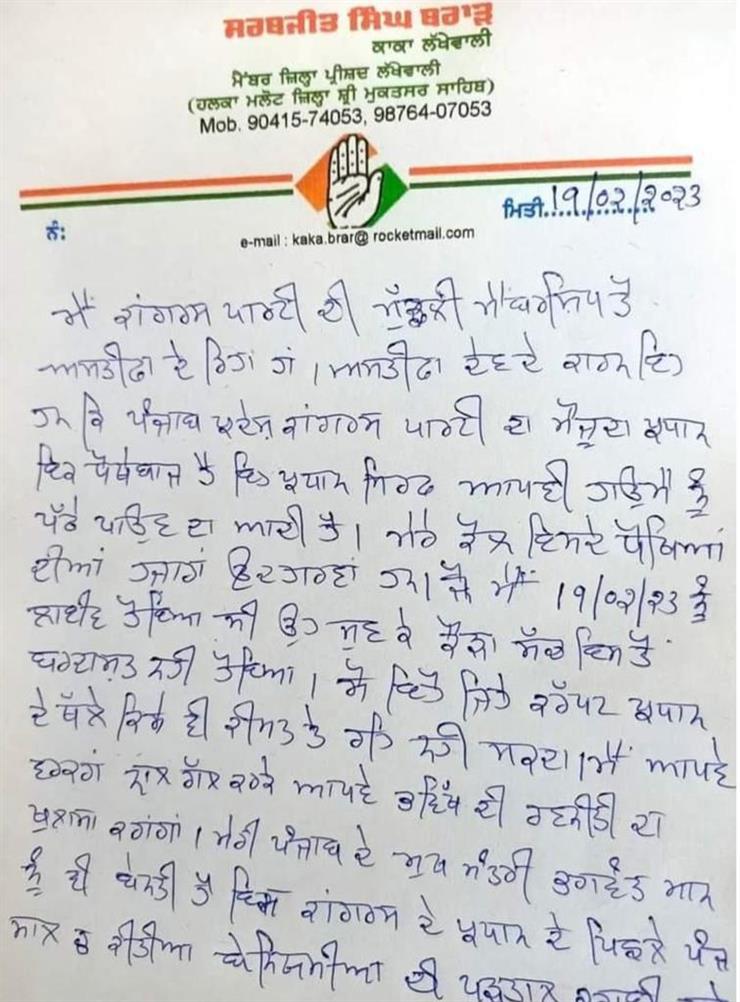 ਸਰਬਜੀਤ ਸਿੰਘ ਬਰਾੜ
ਕਾਕਾ ਲੱਖੇਵਾਲੀ
ਮੈਂਬਰ ਜ਼ਿਲ੍ਹਾ ਪ੍ਰੀਸ਼ਦ ਲੱਖੇਵਾਲੀ
(ਹਲਕਾ ਮਲੋਟ ਜ਼ਿਲ੍ਹਾ ਸ਼੍ਰੀ ਮੁਕਤਸਰ ਸਾਹਿਬ)
Mob. 90415-74053, 98764-07053
ਮਿਤੀ 19/02/2023
ਨੰ:
e-mail : kaka.brar@ rocketmail.com
ਮੈਂ ਕਾਂਗਰਸ ਪਾਰਟੀ ਦੀ ਮੁੱਢਲੀ ਮੈਂਬਰਸ਼ਿਪ ਤੋਂ
ਅਸਤੀਫਾ ਦੇ ਰਿਹਾ ਹਾਂ । ਅਸਤੀਫਾ ਦੇਣ ਦੇ ਕਾਰਨ ਇਹ
ਹਨ ਕਿ ਪੰਜਾਬ ਪ੍ਰਦੇਸ਼ ਕਾਂਗਰਸ ਪਾਰਟੀ ਦਾ ਮੌਜੂਦਾ ਪ੍ਰਧਾਨ
ਇਕ ਧੋਖੇਬਾਜ ਹੈ ਇਹ ਪ੍ਰਧਾਨ ਸਿਰਫ ਆਪਣੀ ਹਉਮੈ ਨੂੰ
ਪੱਠੇ ਪਾਉਣ ਦਾ ਆਦੀ ਹੈ । ਮੇਰੇ ਕੋਲ ਇਸਦੇ ਧੋਖਿਆਂ
ਦੀਆਂ ਹਜਾਰਾਂ ਉਦਾਹਰਣਾਂ ਹਨ । ਜੋ ਮੈਂ 19/02/23 ਨੂੰ
ਲਾਈਵ ਹੋਇਆ ਸੀ ਉਹ ਸੁਣ ਕੇ ਕੌੜਾ ਸੱਚ ਇਸ ਤੋਂ
ਬਰਦਾਸ਼ਤ ਨਹੀ ਹੋਇਆ । ਸੋ ਇਹੋ ਜਿਹੇ ਕਰੱਪਟ ਪ੍ਰਧਾਨ
ਦੇ ਥੱਲੇ ਕਿਸੇ ਵੀ ਕੀਮਤ ਤੇ ਰਹਿ ਨਹੀ ਸਕਦਾ । ਮੈਂ ਆਪਣੇ
ਵਰਕਰਾਂ ਨਾਲ ਗੱਲ ਕਰਕੇ ਆਪਣੇ ਭਵਿੱਖ ਦੀ ਰਣਨੀਤੀ ਦਾ
ਖੁਲਾਸਾ ਕਰਾਂਗਾ । ਮੇਰੀ ਪੰਜਾਬ ਦੇ ਮੁਖ ਮੰਤਰੀ ਭਗਵੰਤ ਮਾਨ
ਨੂੰ ਵੀ ਬੇਨਤੀ ਹੈ ਇਸ ਕਾਂਗਰਸ ਦੇ ਪ੍ਰਧਾਨ ਦੇ ਪਿਛਲੇ ਪੰਜ
ਸਾਲ ਚ ਕੀਤੀਆ ਬੇਨਿਯਮੀਆ ਦੀ ਪੜਤਾਲ